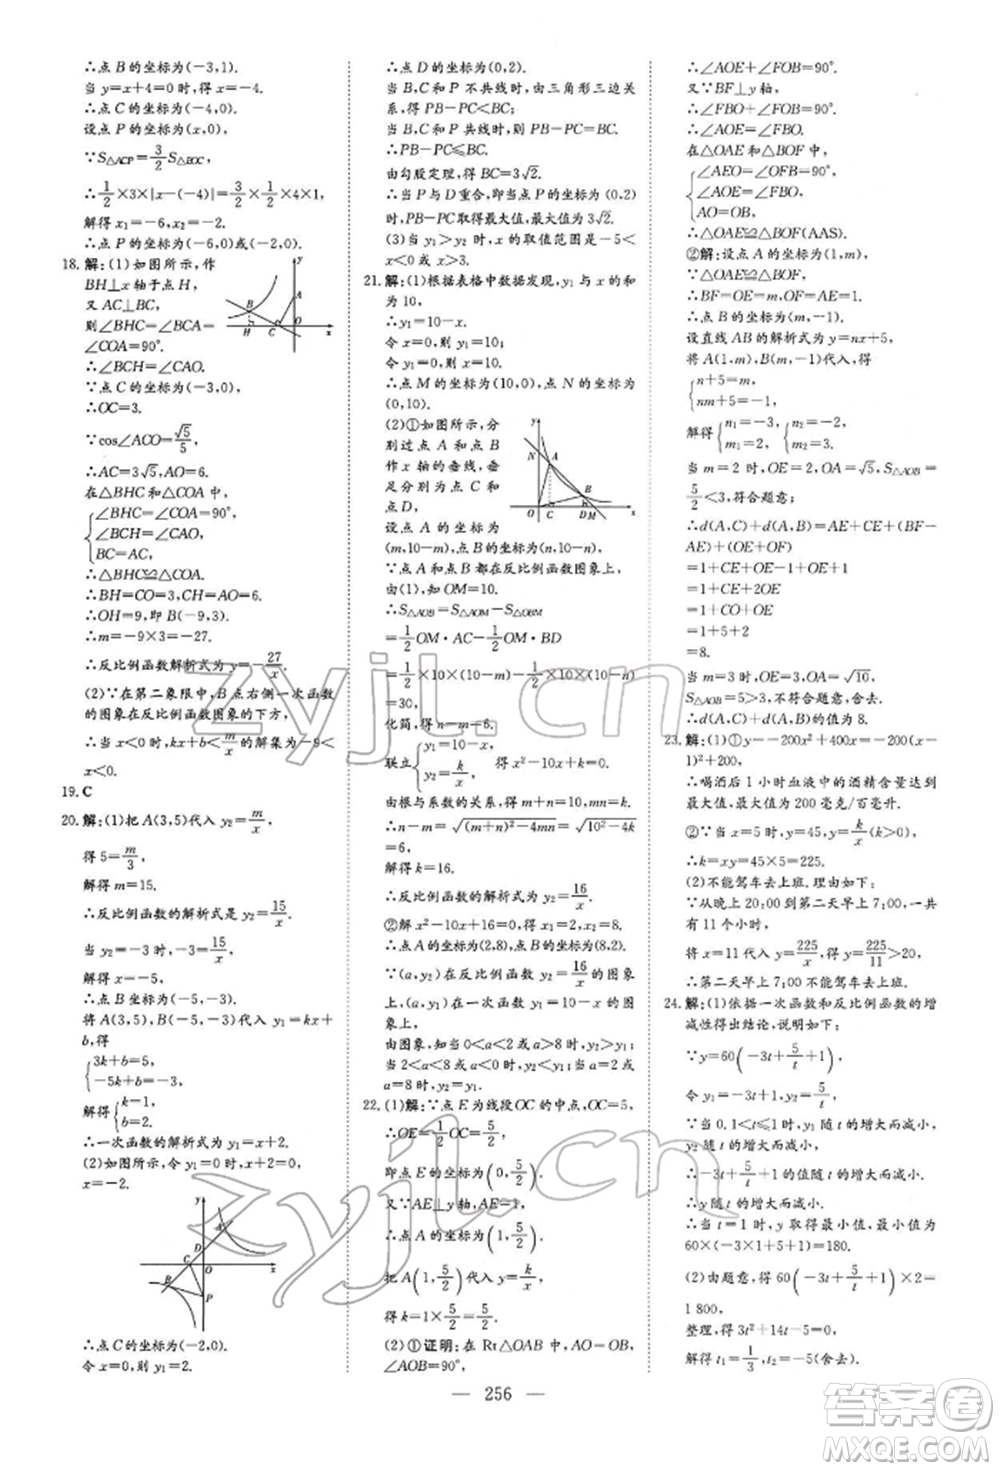 ∴点 B 的坐标为(-3,1).
当 y=x+4=0 时,得 x=-4.
∴点 C 的坐标为(-4,0).
设点 P 的坐标为(x,0),
∵S△ACP=3/2 S△BOC,
∴1/2×3×|x-(-4)|=3/2×1/2×4×1,
解得 x₁=-6,x₂=-2.
∴点 P 的坐标为(-6,0)或(-2,0).
18.解:(1)如图所示,作
BH⊥x 轴于点 H,
又 AC⊥BC,
则∠BHC=∠BCA=
∠COA=90°.
∴∠BCH=∠CAO.
∵点 C 的坐标为(-3,0),
∴OC=3.
∵cos∠ACO=√5/5,
∴AC=3√5,AO=6.
在△BHC 和△COA 中,
∠BHC=∠COA=90°,
∠BCH=∠CAO,
BC=AC,
∴△BHC≌△COA.
∴BH=CO=3,CH=AO=6.
∴OH=9,即 B(-9,3).
∴m=-9×3=-27.
∴反比例函数解析式为 y=-27/x.
(2)∵在第二象限中,B 点右侧一次函数
的图象在反比例函数图象的下方,
∴当 x<0 时,kx+b<m/x 的解集为-9<
x<0.
19.C
20.解:(1)把 A(3,5)代入 y₂=m/x,
得 5=m/3,
解得 m=15.
∴反比例函数的解析式是 y₂=15/x.
当 y₂=-3 时,-3=15/x,
解得 x=-5.
∴点 B 的坐标为(-5,-3).
将 A(3,5),B(-5,-3)代入 y₁=kx+
b,得
3k+b=5,
-5k+b=-3,
解得 k=1,
b=2.
∴一次函数的解析式为 y₁=x+2.
(2)如图所示,令 y₁=0 时,x+2=0,
x=-2.
∴点 C 的坐标为(-2,0).
令 x=0,则 y₁=2.
∴点 D 的坐标为(0,2).
当 B,C 和 P 不共线时,由三角形三边
关系,得 PB-PC<BC;
当 B,C 和 P 共线时,则 PB-PC=BC.
∴PB-PC≤BC.
由勾股定理,得 BC=3√2.
∴当 P 与 D 重合,即当点 P 的坐标为(0,2)
时,PB-PC取得最大值,最大值为 3√2.
(3)当 y₁>y₂ 时,x 的取值范围是-5<
x<0 或 x>3.
21.解:(1)根据表格中数据发现,y₁ 与 x 的和
为 10,
∴y₁=10-x.
令 x=0,则 y₁=10;
令 y₁=0,则 x=10.
∴点 M 的坐标为(10,0),点 N 的坐标为
(0,10).
(2)①如图所示,分
别过点 A 和点 B
作 x 轴的垂线,垂
足分别为点 C 和
点 D.
设点 A 的坐标为
(m,10-m),点 B 的坐标为(n,10-n).
∵点 A 和点 B 都在反比例函数图象上,
由(1),得 OM=10.
∴S△AOB=S△AOM-S△OBM
=1/2 OM·AC-1/2 OM·BD
=1/2×10×(10-m)-1/2×10×(10-n)
=30,
化简,得 n-m=6.
联立 y₁=10-x,
y₂=k/x, 得 x²-10x+k=0.
由根与系数的关系,得 m+n=10,mn=k.
∴n-m=√(m+n)²-4mn=√10²-4k
=6,
解得 k=16.
∴反比例函数的解析式为 y₂=16/x.
②解 x²-10x+16=0,得 x₁=2,x₂=8.
∴点 A 的坐标为(2,8),点 B 的坐标为(8,2).
∵(a,y₂)在反比例函数 y₂=16/x 的图象
上,(a,y₁)在一次函数 y₁=10-x 的图
象上,
由图象,当 0<a<2 或 a>8 时,y₁<y₂;
当 2<a<8 时,y₁>y₂;当 a=2 或
a=8 时,y₁=y₂.
22.(1)解:∵点 E 为线段 OC 的中点,OC=5,
∴OE=1/2 OC=5/2,
即点 E 的坐标为(0,5/2).
又∵AE⊥y 轴,AE=1,
∴点 A 的坐标为(1,5/2).
把 A(1,5/2)代入 y=k/x,
得 k=1×5/2=5/2.
(2)①证明:在 Rt△OAB 中,AO=OB,
∠AOB=90°,
∴∠AOE+∠FOB=90°.
又∵BF⊥y 轴,
∴∠FBO+∠FOB=90°.
∴∠AOE=∠FBO.
在△OAE 和△BOF 中,
∠AEO=∠OFB=90°,
∠AOE=∠FBO,
AO=OB,
∴△OAE≌△BOF(AAS).
②解:设点 A(1,m),
∵△OAE≌△BOF,
∴BF=OE=m,OF=AE=1.
∴点 B 的坐标为(m,-1).
设直线 AB 的解析式为 y=nx+5,
将 A(1,m),B(m,-1)代入,得
n+5=m,
nm+5=-1,
解得 n₁=-3, n₂=-2,
m₁=2, m₂=3.
当 m=2 时,OE=2,OA=√5,S△AOB=
5/2<3,符合题意;
∴d(A,C)+d(A,B)=AE+CE+(BF-
AE)+(CE+OF)
=1+CE+OE-1+CE+1
=1+CE+2OE
=1+CO+OE
=1+5+2
=8.
当 m=3 时,OE=3,OA=√10,
S△AOB=5>3,不符合题意,舍去.
∴d(A,C)+d(A,B)的值为 8.
23.解:(1)①y=-200x²+400x=-200(x-
1)²+200,
∴喝酒后 1 小时血液中的酒精含量达到
最大值,最大值为 200 毫克/百毫升.
②∵当 x=5 时,y=45,y=k/x(k>0),
∴k=xy=45×5=225.
(2)不能驾车去上班.理由如下:
∵从晚上 20:00 到第二天早上 7:00,一共
有 11 个小时,
将 x=11 代入 y=225/x,得 y=225/11>20,
∴第二天早上 7:00不能驾车去上班.
24.解:(1)依据一次函数和反比例函数的增
减性得出结论,说明如下:
∵y=60(-3t+5/t+1),
令 y₁=-3t+1,y₂=5/t,
∵当 0.1<t≤1 时,y₁ 随 t 的增大而减
小,y₂ 随 t 的增大而减小,
∴-3t+5/t 的值随 t 的增大而减小.
∴y 随 t 的增大而减小.
∴当 t=1 时,y 取得最小值,最小值为
60×(-3×1+5/1+1)=180.
(2)由题意,得 60(-3t+5/t+1)×2=
1 800,
整理,得 3t²+14t-5=0.
解得 t₁=1/3,t₂=-5(舍去).
— 256 —
zyjl.cn
zyjl.cn
答案圈
MXQE.COM